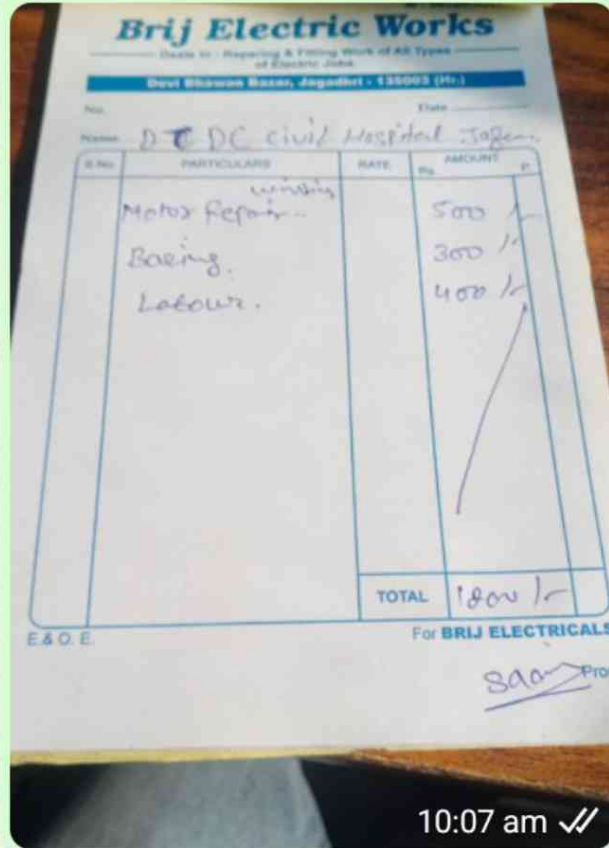 Brij Electric Works
Deals in : Repairing & Fitting Work of All Types
of Electric Jobs
Devi Bhawan Bazar, Jagadhri - 135003 (Hr.)
No. Date
Name D T DC Civil Hospital
S.No. PARTICULARS RATE AMOUNT
Rs. P.
winding
Motor Repair 500 /-
Baering. 300 /-
Labour. 400 /-
TOTAL
E.& O. E. For BRIJ ELECTRICALS
Pro
10:07 am